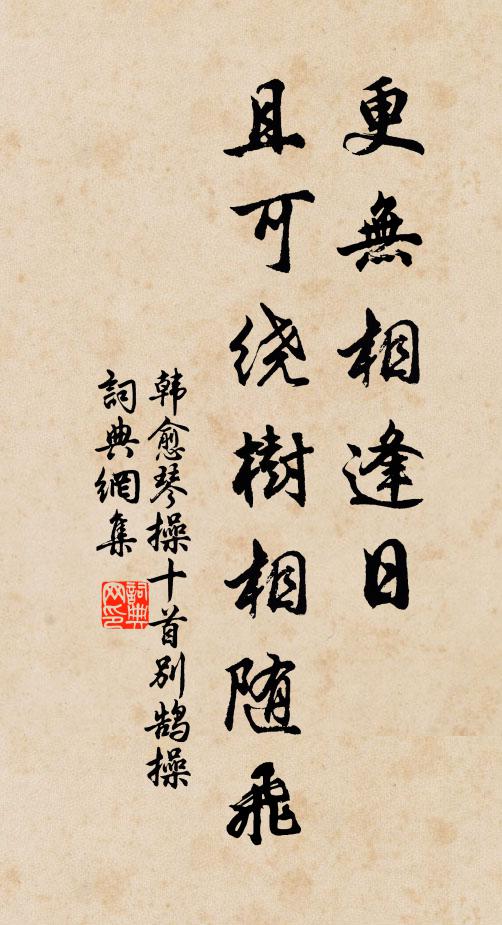 更無相逢日
且可绕樹相随飛
韩愈琴操十首别鹄操
詞典網集
詞典网印